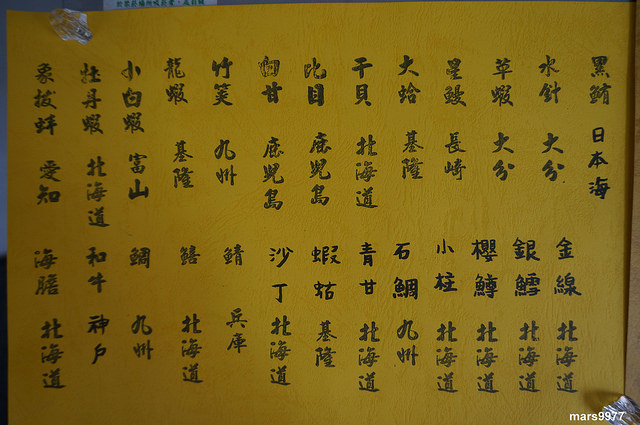 黑鮪 日本海
水針 大分
草蝦 大分
星鰻 長崎
大蛤 基隆
干貝 北海道
比目 鹿兒島
甘 鹿兒島
竹筴 九州
龍蝦 基隆
小白蝦 富山
牡丹蝦 北海道
象拔蚌 愛知
金線 北海道
銀鱈 北海道
櫻鱒 北海道
小柱 北海道
石鯛 九州
青甘 北海道
蝦蛄 基隆
沙丁 北海道
鯖 兵庫
北海道
鯛 九州
和牛 神戶
海膽 北海道
mars9977